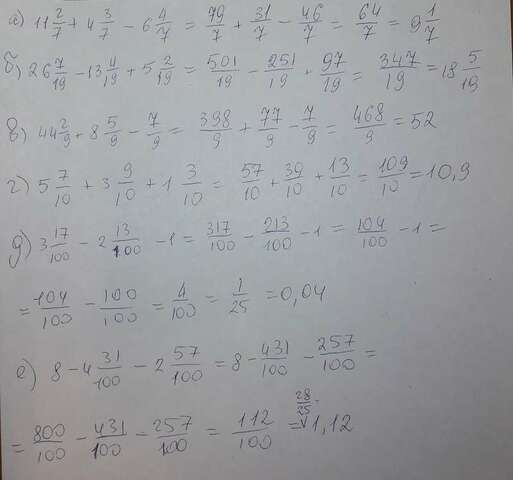 а) 11 2/7 + 4 3/7 - 6 4/7 = 79/7 + 31/7 - 46/7 = 64/7 = 9 1/7
б) 26 7/19 - 13 4/19 + 5 2/19 = 501/19 - 251/19 + 97/19 = 347/19 = 18 5/19
в) 44 2/9 + 8 5/9 - 7/9 = 398/9 + 77/9 - 7/9 = 468/9 = 52
г) 5 7/10 + 3 9/10 + 1 3/10 = 57/10 + 39/10 + 13/10 = 109/10 = 10,9
д) 3 17/100 - 2 13/100 - 1 = 317/100 - 213/100 - 1 = 104/100 - 1 =
= 104/100 - 100/100 = 4/100 = 1/25 = 0,04
е) 8 - 4 31/100 - 2 57/100 = 8 - 431/100 - 257/100 =
= 800/100 - 431/100 - 257/100 = 112/100 = 28/25 = 1,12